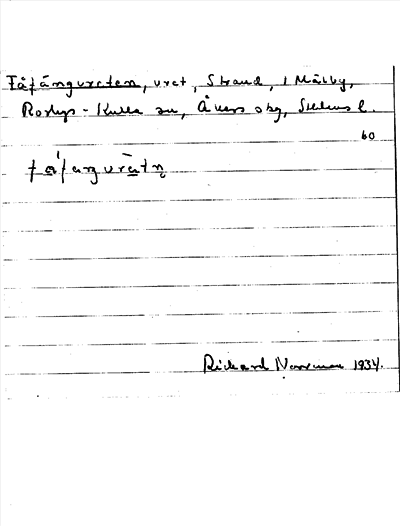 Fåfängvreten, vret, Strand, 1 Mälby,
Rorbys-Kulla sn, Åkers obg, Stblms l.
60
fåfaŋgvrätn̥
Rickard Norrman 1934.